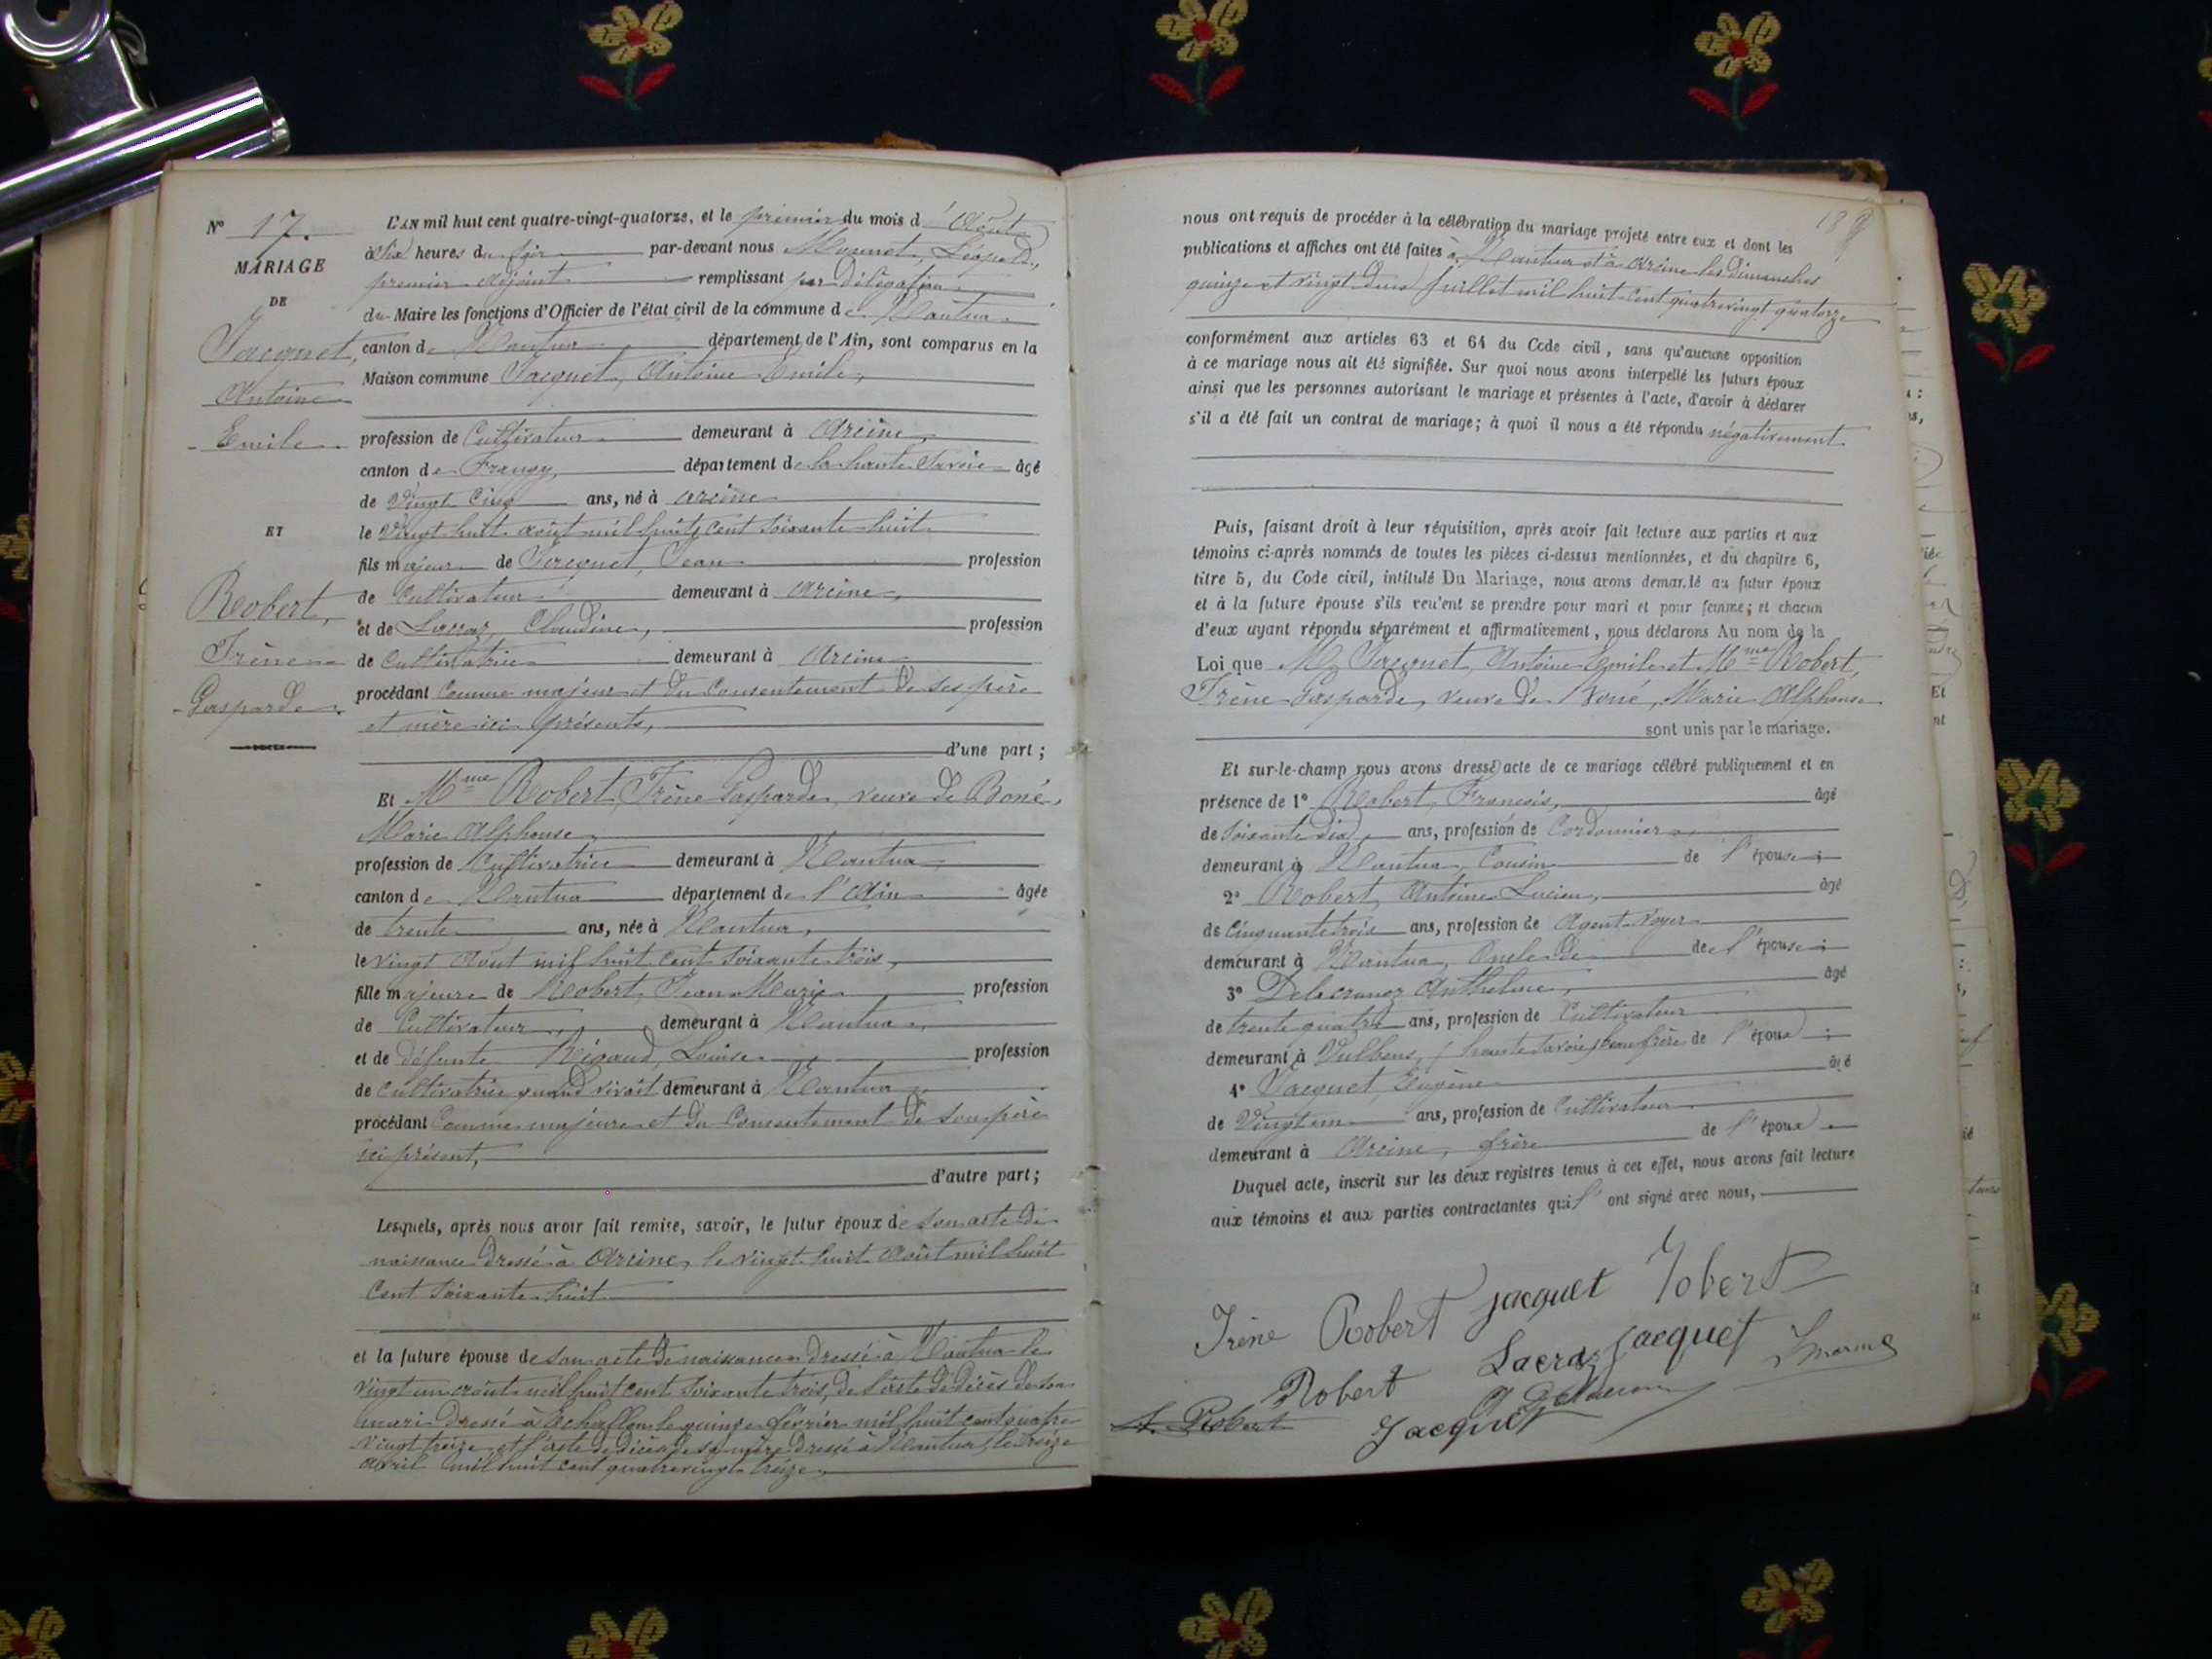 N° 17.
MARIAGE
DE
Jacquet,
Antoine
Emile
ET
Robert,
Irène
Gasparde.
L'AN mil huit cent quatre-vingt-quatorze, et le premier du mois d'Août
à six heures du soir par-devant nous Léopold,
premier adjoint remplissant par délégation
du Maire les fonctions d'Officier de l'état civil de la commune de Nantua
canton de Nantua département de l'Ain, sont comparus en la
Maison commune Jacquet, Antoine Emile,
profession de Cultivateur demeurant à Arcine,
canton de Frangy, département de la haute Savoie âgé
de Vingt Cinq ans, né à Arcine
le Vingt huit août mil huit cent soixante huit
fils majeur de Jacquet, Jean profession
de Cultivateur demeurant à Arcine,
et de Lacraz, Claudine, profession
de Cultivatrice demeurant à Arcine
procédant Comme majeur et du Consentement de ses père
et mère ici présents,
d'une part ;
Et Mme Robert, Irène Gasparde, veuve de Boné,
Marie Alphonse,
profession de Cultivatrice demeurant à Nantua,
canton de Nantua département de l'Ain âgée
de trente ans, née à Nantua,
le vingt Août mil huit cent soixante trois,
fille majeure de Robert, Jean Marie profession
de Cultivateur, demeurant à Nantua,
et de défunte Rigaud, Louise profession
de Cultivatrice quand vivait demeurant à Nantua
procédant Comme majeure et du Consentement de son père
ici présent,
d'autre part ;
Lesquels, après nous avoir fait remise, savoir, le futur époux de son acte de
naissance dressé à Arcine, le vingt huit Août mil huit
cent soixante huit
et la future épouse de son acte de naissance dressé à Nantua le
vingt un août mil huit cent soixante trois, de l'acte de décès de son
mari dressé à Echallon le quinze février mil huit cent quatre
vingt treize et l'acte de décès de sa mère dressé à Nantua, le treize
avril mil huit cent quatre vingt treize,
189
nous ont requis de procéder à la célébration du mariage projeté entre eux et dont les
publications et affiches ont été faites à Nantua et à Arcine les dimanches
quinze et vingt deux Juillet mil huit cent quatre vingt quatorze
conformément aux articles 63 et 64 du Code civil, sans qu'aucune opposition
à ce mariage nous ait été signifiée. Sur quoi nous avons interpellé les futurs époux
ainsi que les personnes autorisant le mariage et présentes à l'acte, d'avoir à déclarer
s'il a été fait un contrat de mariage ; à quoi il nous a été répondu négativement
Puis, faisant droit à leur réquisition, après avoir fait lecture aux parties et aux
témoins ci-après nommés de toutes les pièces ci-dessus mentionnées, et du chapitre 6,
titre 5, du Code civil, intitulé Du Mariage, nous avons demandé au futur époux
et à la future épouse s'ils veulent se prendre pour mari et pour femme ; et chacun
d'eux ayant répondu séparément et affirmativement, nous déclarons Au nom de la
Loi que Mr Jacquet, Antoine Emile et Mme Robert,
Irène Gasparde, veuve de Boné, Marie Alphonse
sont unis par le mariage.
Et sur-le-champ nous avons dressé acte de ce mariage célébré publiquement et en
présence de 1° Robert, François, âgé
de soixante dix ans, profession de Cordonnier
demeurant à Nantua, Cousin de l'épouse ;
2° Robert, Antoine Lucien, âgé
de Cinquante trois ans, profession de Agent Voyer
demeurant à Nantua, Oncle de l'épouse ;
3° Anthelme, âgé
de trente quatre ans, profession de Cultivateur
demeurant à Vulbens, (haute Savoie) beau frère de l'époux ;
4° Jacquet, Eugène âgé
de Vingt un ans, profession de Cultivateur
demeurant à Arcine, frère de l'époux
Duquel acte, inscrit sur les deux registres tenus à cet effet, nous avons fait lecture
aux témoins et aux parties contractantes qui l'ont signé avec nous,
Irène Robert jacquet Robert
Robert Lacraz jacquet
Robert Jacquet